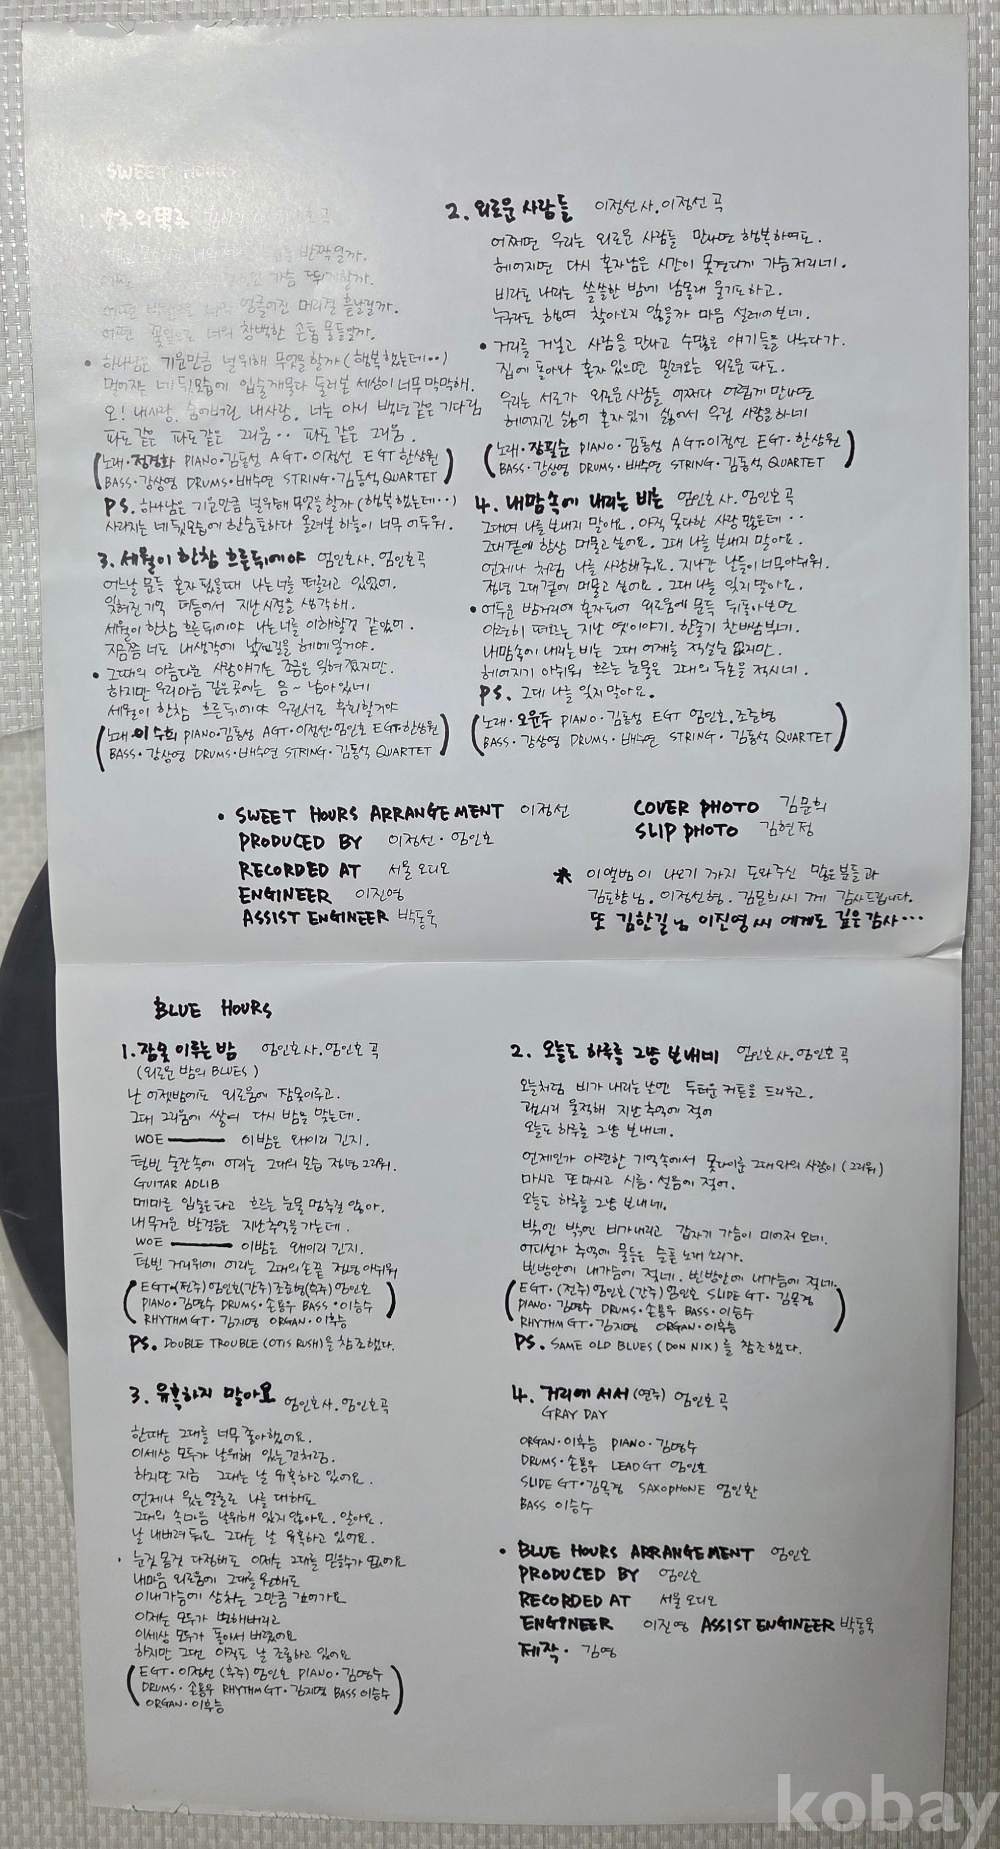 SWEET HOURS
1. 女子의 男子
반짝일까.
가슴 뛰게할까.
엉클어진 머리결 흩날릴까.
어떤 꽃잎으로 너의 창백한 손톱 물들일까.
• 하나남은 기운만큼 널위해 무엇을 할까 (행복했는데··)
멀어지는 네 뒷모습에 입술깨물다 둘러본 세상이 너무 막막해.
오! 내사랑. 숨어버린 내사랑. 너는 아니 백년같은 기다림
파도같은 파도같은 그리움·· 파도같은 그리움.
(노래·정경화 PIANO·김동성 A GT·이정선 E GT 한상원
BASS·강상영 DRUMS·배수연 STRING·김동석 QUARTET)
PS. 하나남은 기운만큼 널위해 무엇을 할까 (행복했는데··)
사라지는 네 뒷모습에 한숨토하다 올려본 하늘이 너무 어두워.
3. 세월이 한참 흐른뒤에야 엄인호사. 엄인호곡
어느날 문득 혼자 됐을때 나는 너를 떠올리고 있었어.
잊혀진 기억 더듬어서 지난시절을 생각해.
세월이 한참 흐른뒤에야 나는 너를 이해할것 같았어.
지금쯤 너도 내생각에 낯선길을 헤메일거야.
• 그때의 아름다운 사랑얘기는 조금은 잊혀졌지만.
하지만 우리마음 깊은곳에는 음~ 남아있네
세월이 한참 흐른뒤에야 우린서로 후회할거야
(노래·이수희 PIANO·김동성 A GT·이정선·엄인호 E GT·한상원
BASS·강상영 DRUMS·배수연 STRING·김동석 QUARTET)
2. 외로운 사람들 이정선 사. 이정선 곡
어쩌면 우리는 외로운 사람들 만나면 행복하여도.
헤어지면 다시 혼자남은 시간이 못견디게 가슴저리네.
비라도 내리는 쓸쓸한 밤에 남몰래 울기도하고.
누구라도 행여 찾아오지 않을까 마음 설레어보네.
• 거리를 거닐고 사람을 만나고 수많은 얘기들을 나누다가.
집에 돌아와 혼자 있으면 밀려오는 외로운 파도.
우리는 서로가 외로운 사람들 어쩌다 어렵게 만나면
헤어지긴 싫어 혼자있기 싫어서 우린 사랑을하네
(노래·장필순 PIANO·김동성 A GT·이정선 E GT·한상원
BASS·강상영 DRUMS·배수연 STRING·김동석 QUARTET)
4. 내맘속에 내리는 비는 엄인호 사. 엄인호 곡
그대여 나를 보내지 말아요. 아직 못다한 사랑 많은데··
그대곁에 항상 머물고 싶어요. 그대 나를 보내지 말아요.
언제나 처럼 나를 사랑해줘요. 지나간 날들이 너무아쉬워.
정녕 그대 곁에 머물고 싶어요. 그대 나를 잊지 말아요.
• 어두운 밤거리에 혼자되어 외로움에 문득 뒤돌아보면
아련히 떠오르는 지난 옛이야기. 한줄기 찬바람부네.
내맘속에 내리는 비는 그대 어깨를 적실순 없지만.
헤어지기 아쉬워 흐르는 눈물은 그대의 두손을 적시네.
PS. 그대 나를 잊지 말아요.
(노래·오윤주 PIANO·김동성 E GT 엄인호. 조준형
BASS·강상영 DRUMS·배수연 STRING·김동석 QUARTET)
• SWEET HOURS ARRANGEMENT 이정선
PRODUCED BY 이정선·엄인호
RECORDED AT 서울 오디오
ENGINEER 이진영
ASSIST ENGINEER 박동욱
COVER PHOTO 김문희
SLIP PHOTO 김현정
* 이앨범이 나오기 까지 도와주신 많은분들과
김도향님. 이정선형. 김문희씨 께 감사드립니다.
또 김한길님 이진영씨 에게도 깊은감사···
BLUE HOURS
1. 잠못 이루는 밤 엄인호사. 엄인호 곡
(외로운 밤의 BLUES)
난 어젯밤에도 외로움에 잠못이루고.
그대 그리움에 쌓여 다시 밤을 맞는데.
WOE ——— 이밤은 왜이리 긴지.
텅빈 술잔속에 어리는 그대의 모습 정녕 그리워.
GUITAR ADLIB
메마른 입술은타고 흐르는 눈물 멈추질 않아.
내무거운 발걸음은 지난추억을 가는데.
WOE ——— 이밤은 왜이리 긴지.
텅빈 거리위에 어리는 그대의손끝 정녕 아쉬워
(E GT·(전주) 엄인호 (간주) 조준형 (후주) 엄인호
PIANO·김명수 DRUMS·손용우 BASS·이승수
RHYTHM GT·김지명 ORGAN·이후능)
PS. DOUBLE TROUBLE (OTIS RUSH) 을 참조했다.
2. 오늘도 하루를 그냥 보내네 엄인호사. 엄인호 곡
오늘처럼 비가 내리는 날엔 두터운 커튼을 드리우고.
괜시리 울적해 지난 추억에 젖어
오늘도 하루를 그냥 보내네.
언제인가 아련한 기억속에서 못다이룬 그대와의 사랑이 (그리워)
마시고 또 마시고 시름·설움에 젖어.
오늘도 하루를 그냥 보내네.
밖엔 밖엔 비가내리고 갑자기 가슴이 미어져 오네.
어디선가 추억에 물들은 슬픈 노래 소리가.
빈방안에 내가슴에 젖네. 빈방안에 내가슴에 젖네.
(E GT·(전주) 엄인호 (간주) 엄인호 SLIDE GT·김목경
PIANO·김명수 DRUMS·손용우 BASS·이승수
RHYTHM GT·김지명 ORGAN·이후능)
PS. SAME OLD BLUES (DON NIX) 를 참조했다.
3. 유혹하지 말아요 엄인호사. 엄인호곡
한때는 그대를 너무 좋아했어요.
이세상 모두가 날위해 있는것처럼.
하지만 지금 그대는 날 유혹하고 있어요.
언제나 웃는얼굴로 나를 대해도
그대의 속마음 날위해 있지 않아요. 알아요.
날 내버려 둬요 그대는 날 유혹하고 있어요.
• 눈짓 몸짓 다정해도 이제는 그대를 믿을수가 없어요
내마음 외로움에 그대를 원해도
이내가슴에 상처는 그만큼 깊어가요
이제는 모두가 변해버리고
이세상 모두가 돌아서 버렸어요
하지만 그댄 아직도 날 조롱하고 있어요
(E GT·이정선 (후주) 엄인호 PIANO·김명수
DRUMS·손용우 RHYTHM GT·김지명 BASS 이승수
ORGAN·이후능)
4. 거리에 서서 (연주) 엄인호 곡
GRAY DAY
ORGAN·이후능 PIANO·김명수
DRUMS·손용우 LEAD GT 엄인호
SLIDE GT·김목경 SAXOPHONE 엄인환
BASS 이승수
• BLUE HOURS ARRANGEMENT 엄인호
PRODUCED BY 엄인호
RECORDED AT 서울 오디오
ENGINEER 이진영 ASSIST ENGINEER 박동욱
제작· 김영
kobay